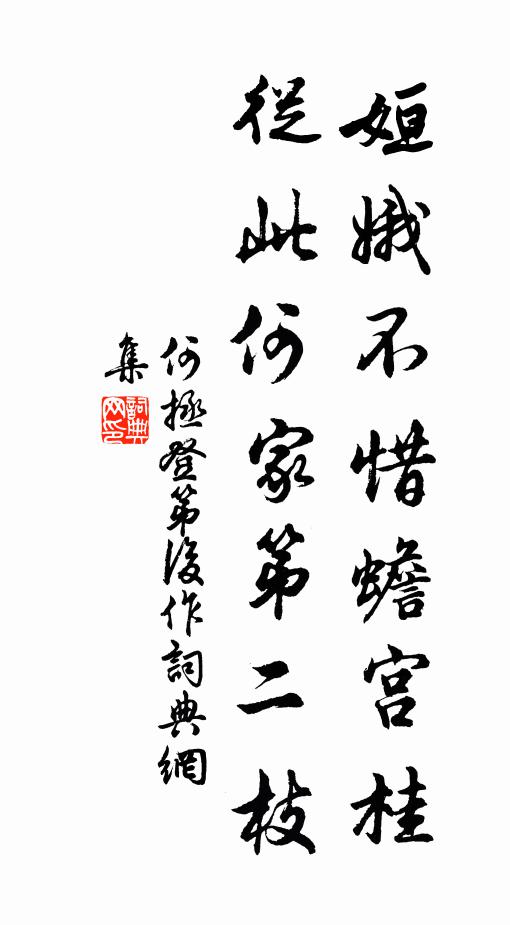 姮娥不惜蟾宫桂
從此何家第二枝
何拯登第後作詞典網
集
詞典網印